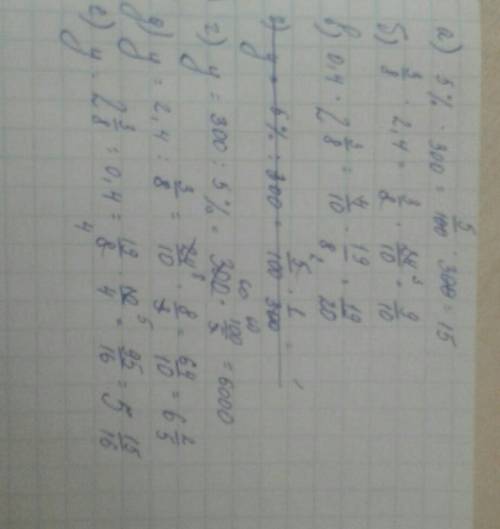 а) 5% · 300 = 5/100 · 300 = 15
б) 3/8 · 2,4 = 3/8 · 24/10 = 9/10
в) 0,4 · 2 3/8 = 4/10 · 19/8 = 19/20
г) y = 300 : 5% = 300 · 100/5 = 6000
д) y = 2,4 : 3/8 = 24/10 · 8/3 = 64/10 = 6 2/5
е) y = 2 3/8 : 0,4 = 19/8 · 10/4 = 95/16 = 5 15/16